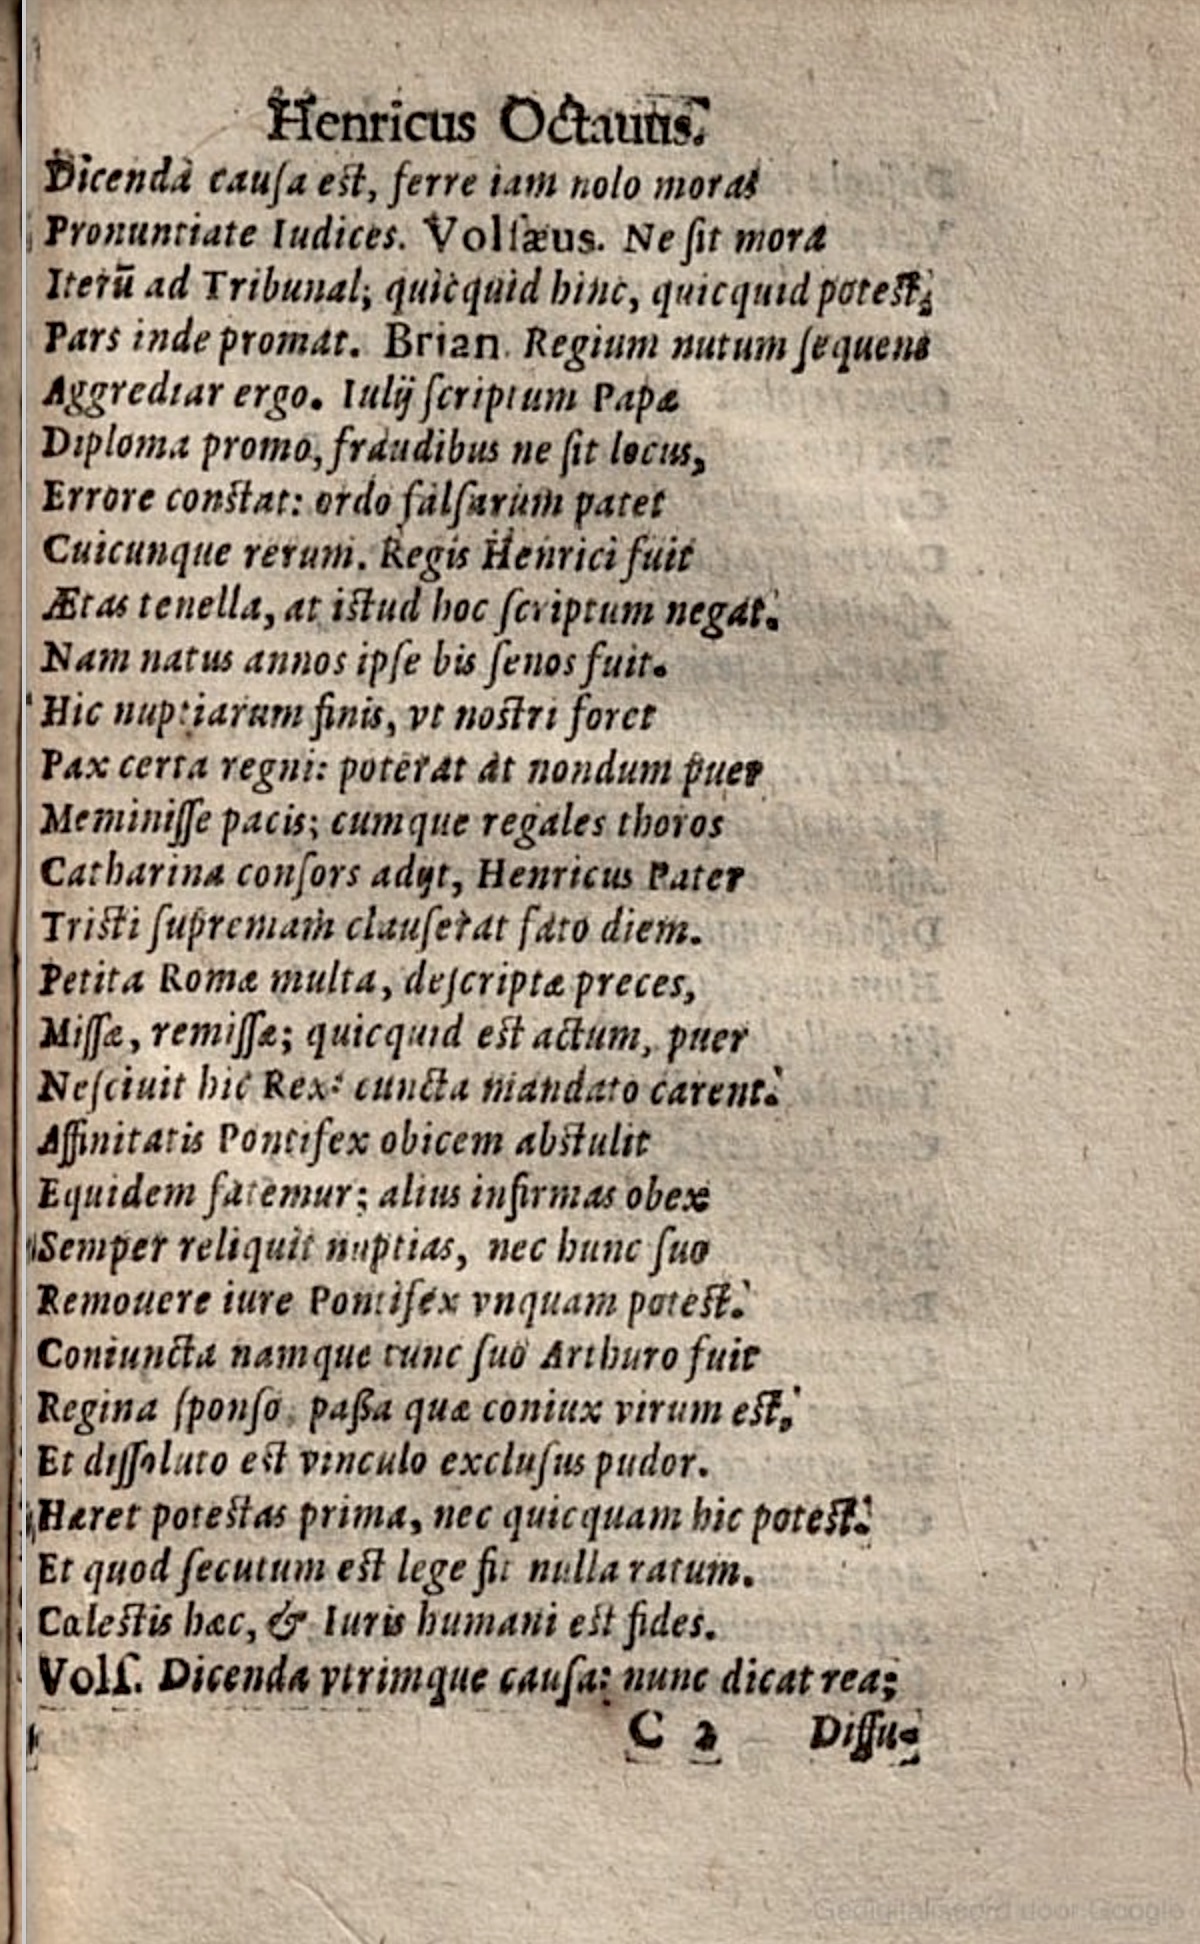 Henricus Octauus.
Dicenda cauſa eſt, ferre iam nolo moras
Pronuntiate Iudices. Volſæus. Ne ſit mora
Iterū ad Tribunal; quicquid hinc, quicquid poteſt;
Pars inde promat. Brian. Regium nutum ſequens
Aggrediar ergo. Iulij ſcriptum Papæ
Diploma promo, fraudibus ne ſit locus,
Errore conſtat: ordo falſarum patet
Cuicunque rerum. Regis Henrici fuit
Ætas tenella, at iſtud hoc ſcriptum negat.
Nam natus annos ipſe bis ſenos fuit.
Hic nuptiarum finis, vt noſtri foret
Pax certa regni: poterat at nondum puer
Meminiſſe pacis; cumque regales thoros
Catharina conſors adijt, Henricus Pater
Triſti ſupremam clauſerat fato diem.
Petita Romæ multa, deſcriptæ preces,
Miſſæ, remiſſæ; quicquid eſt actum, puer
Neſciuit hic Rex: cuncta mandato carent.
Affinitatis Pontifex obicem abſtulit
Equidem fatemur; alius infirmas obex
Semper reliquit nuptias, nec hunc ſuo
Remouere iure Pontifex vnquam poteſt.
Coniuncta namque tunc ſuo Arthuro fuit
Regina ſponſo, paßa quæ coniux virum eſt,
Et diſſoluto eſt vinculo excluſus pudor.
Hæret poteſtas prima, nec quicquam hic poteſt.
Et quod ſecutum eſt lege ſit nulla ratum.
Cæleſtis hæc, & Iuris humani eſt fides.
Volſ. Dicenda vtrimque cauſa: nunc dicat rea;
C 2 Diſſu-
Gedigitaliseerd door Google